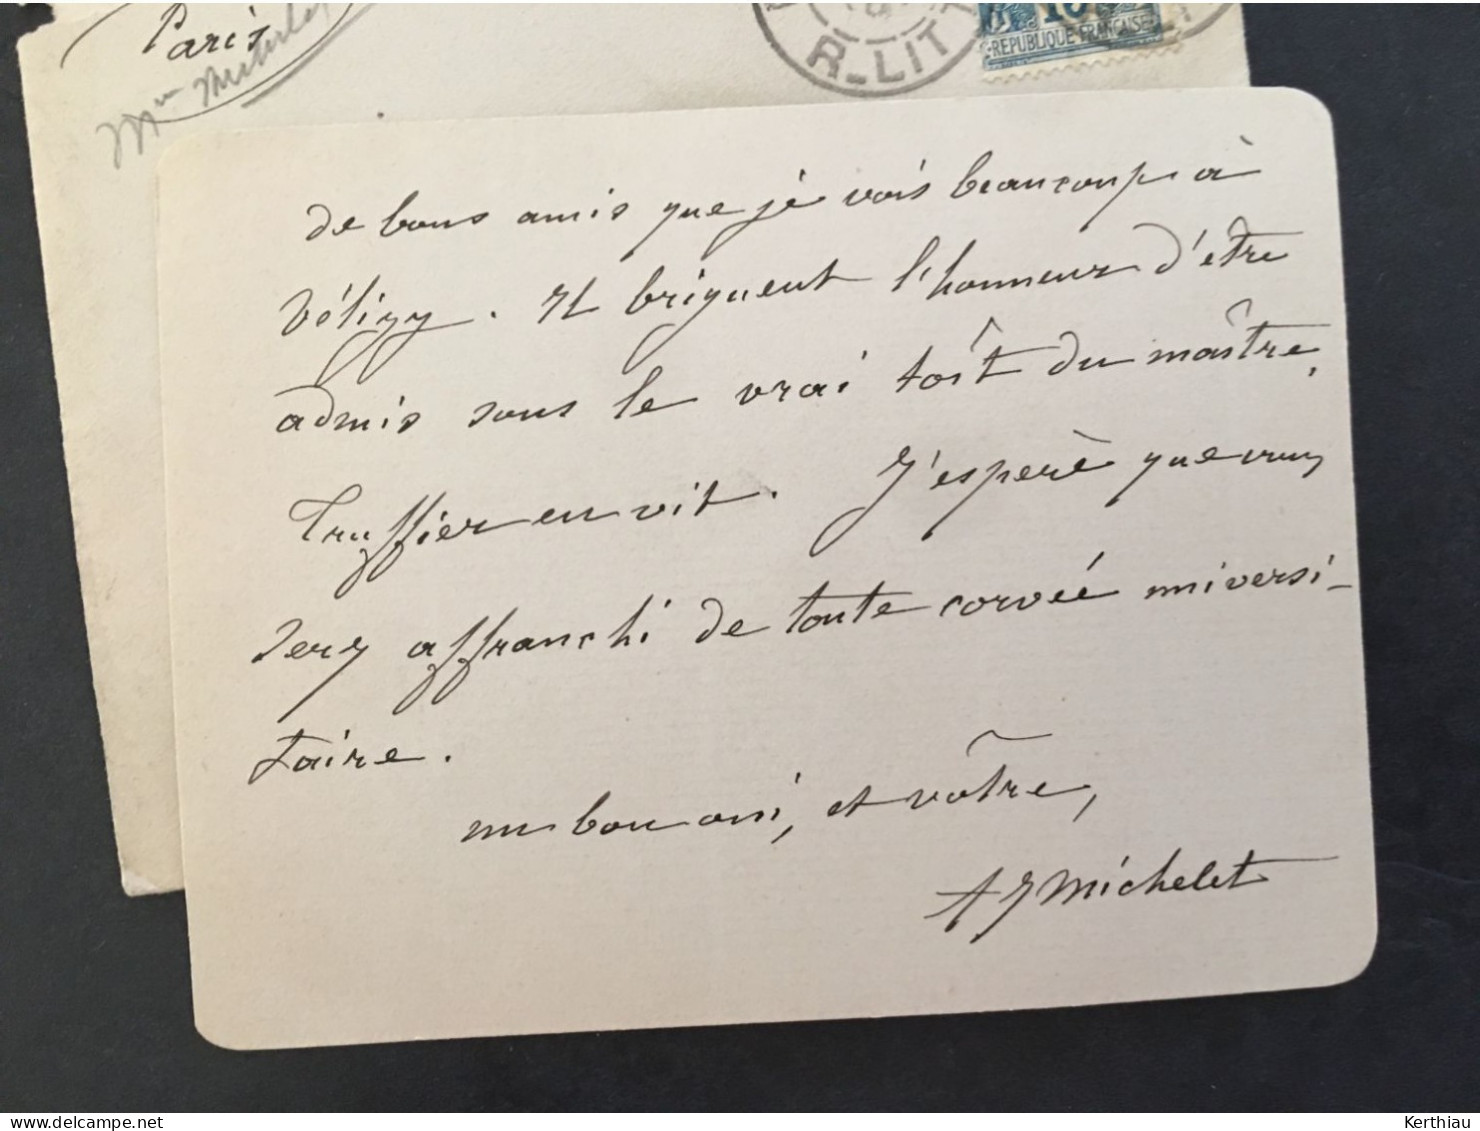 Paris
Mme Michelet
R-LIT
REPUBLIQUE FRANÇAISE
de bons amis que je vois beaucoup à
Vélizy. Il briguent l'honneur d'être
admis sous le vrai toît du maître,
Truffier en vit. J'espère que vous
serez affranchi de toute corvée universi-
taire.
un bon ami, et vôtre,
A J Michelet
Kerthiau